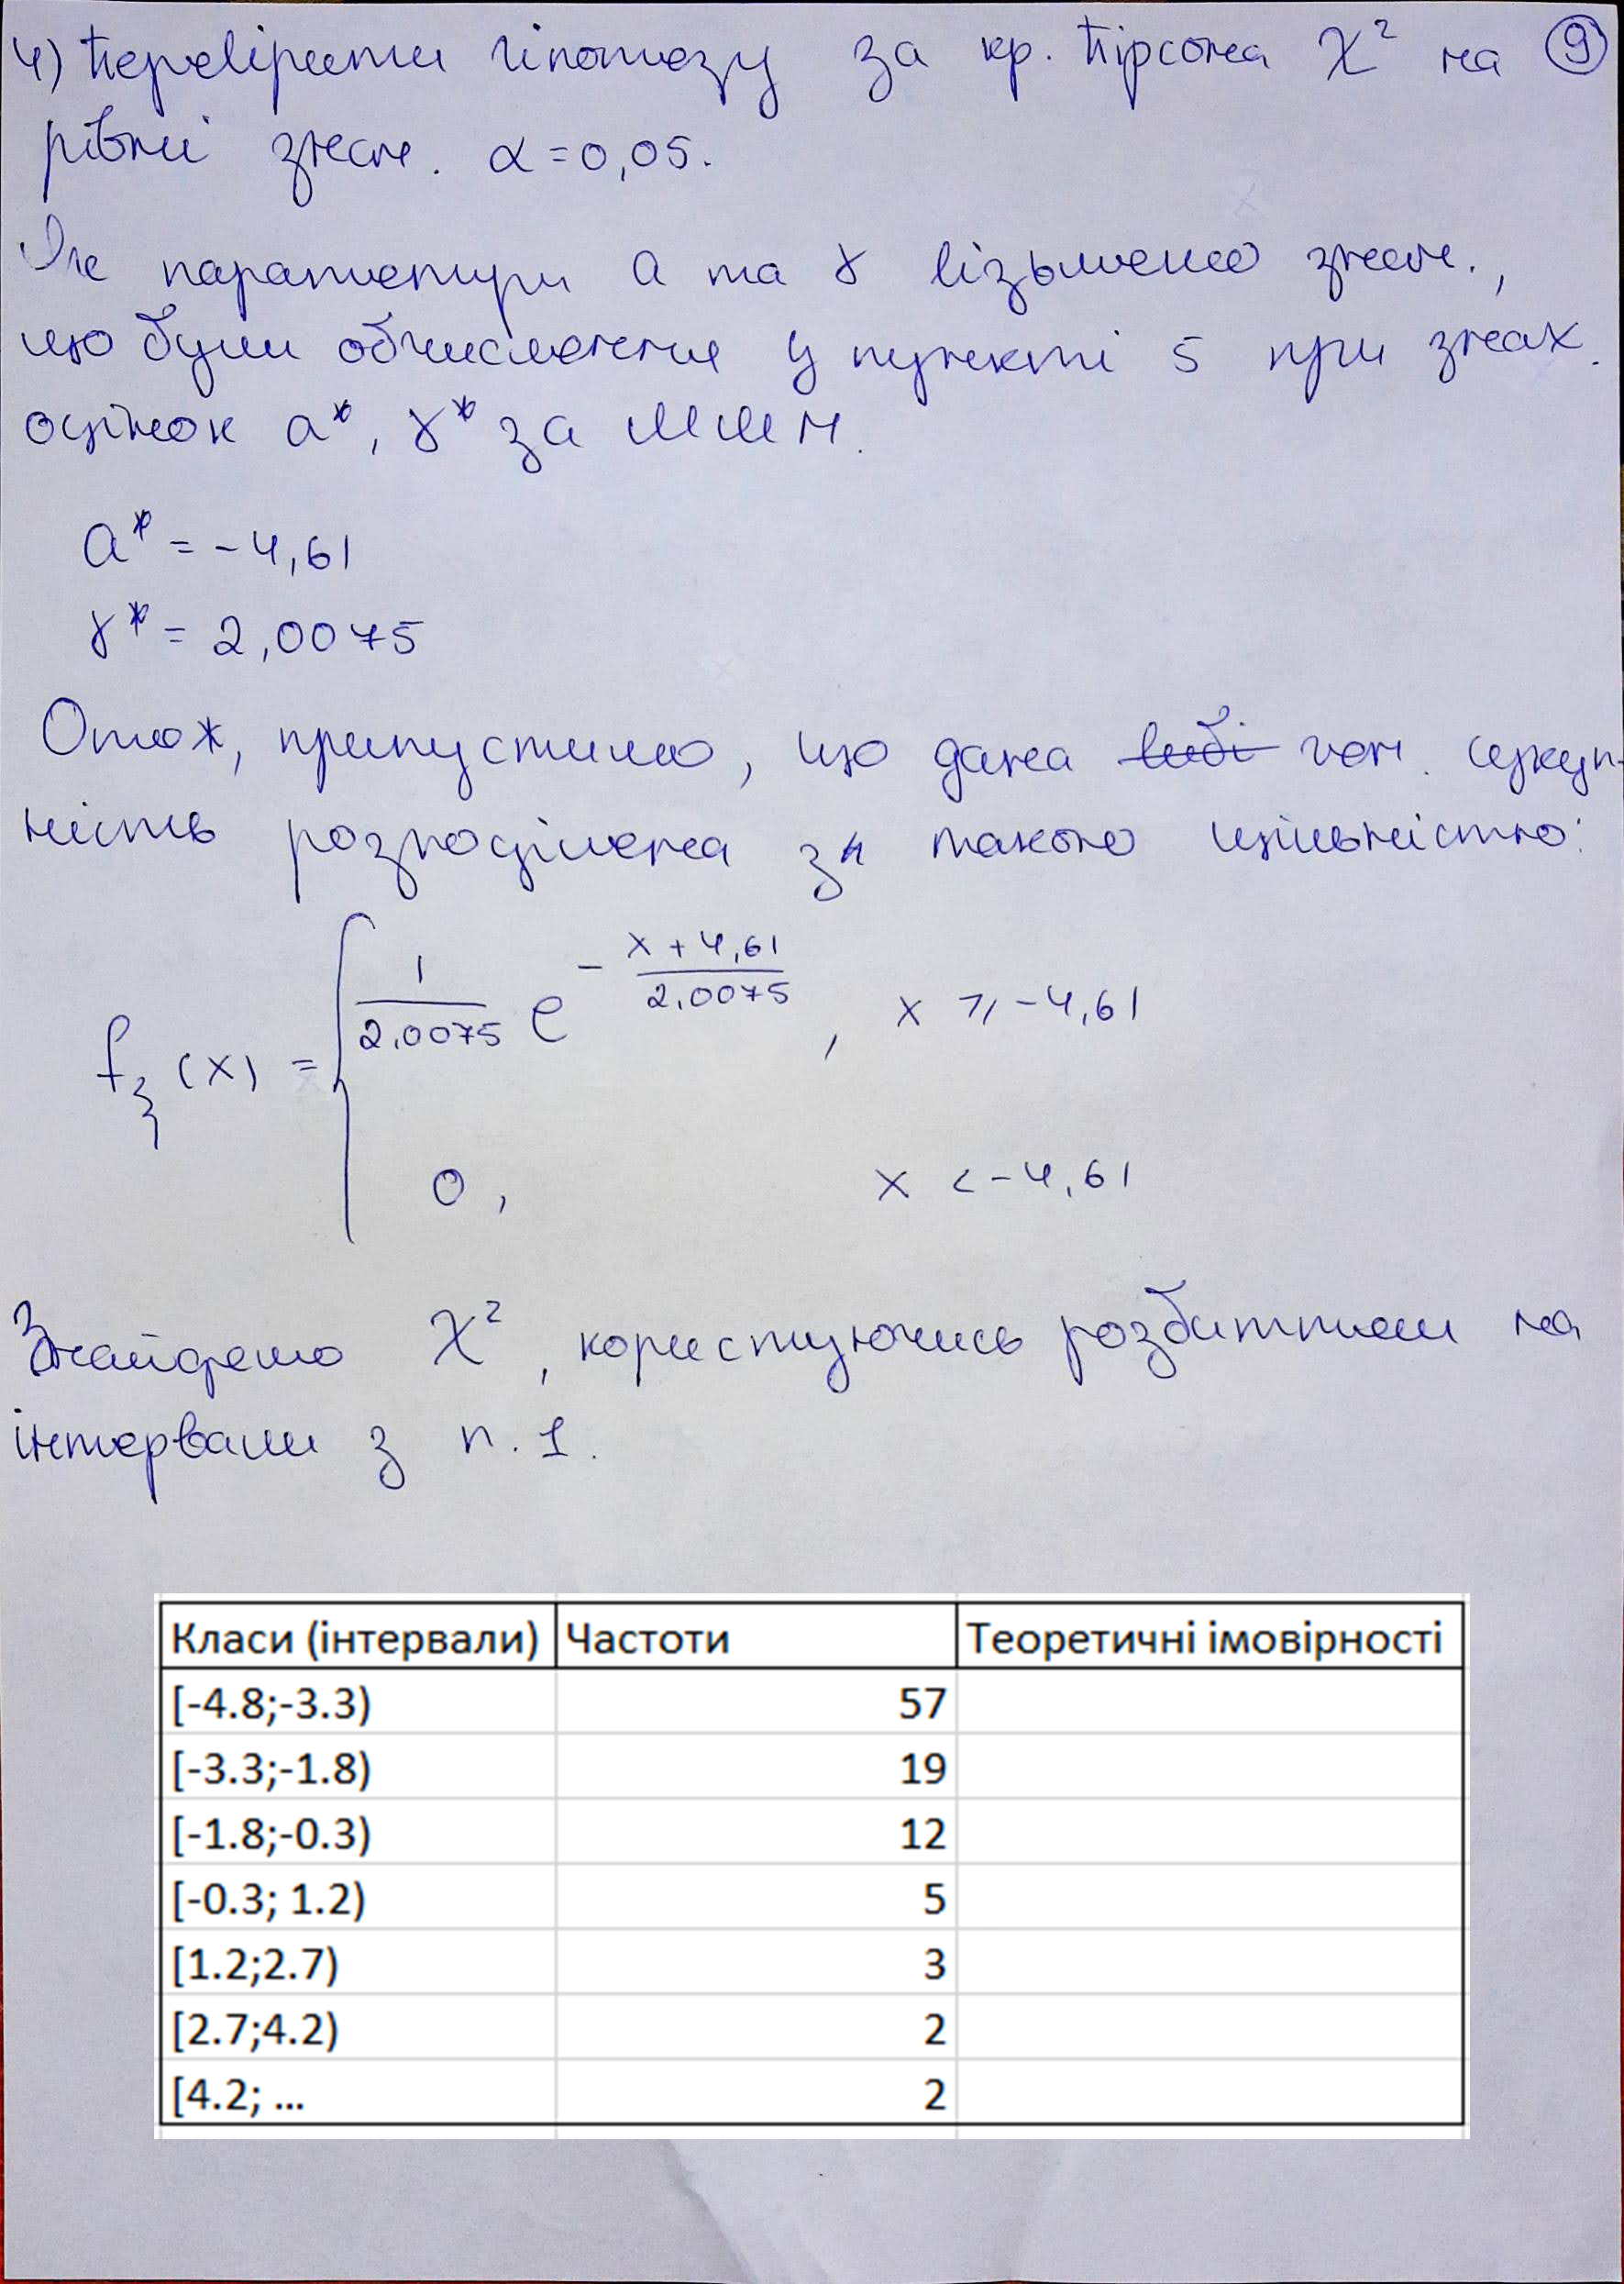 4) Перевірити гіпотезу за кр. Пірсона χ² на ⑨
рівні знач. α = 0,05.
Як параметри a та γ візьмемо знач.,
що були обчислення у пункті 5 при знах.
оцінок a*, γ* за ММН.
a* = -4,61
γ* = 2,0075
Отож, припустимо, що дана ген. сукуп-
ність розподілена за такою щільністю:
f_ξ(x) = { 1/2,0075 e^(-(x + 4,61)/2,0075), x ⩾ -4,61
0, x < -4,61
Знайдемо χ², користуючись розбиттям на
інтервали з п. 1.
Класи (інтервали) Частоти Теоретичні імовірності
[-4.8;-3.3) 57
[-3.3;-1.8) 19
[-1.8;-0.3) 12
[-0.3; 1.2) 5
[1.2;2.7) 3
[2.7;4.2) 2
[4.2; ... 2